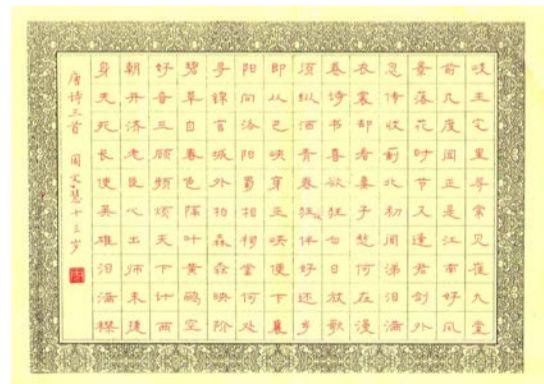 岐王宅里寻常见崔九堂
前几度闻正是江南好风
景落花时节又逢君剑外
忽传收蓟北初闻涕泪满
衣裳却看妻子愁何在漫
卷诗书喜欲狂白日放歌
须纵酒青春狂伴好还乡
即从巴峡穿巫峡便下襄
阳向洛阳蜀相祠堂何处
寻锦官城外柏森森映阶
碧草自春色隔叶黄鹂空
好音三顾频烦天下计两
朝开济老臣心出师未捷
身先死长使英雄泪满襟
唐诗三首 周文慧十三岁